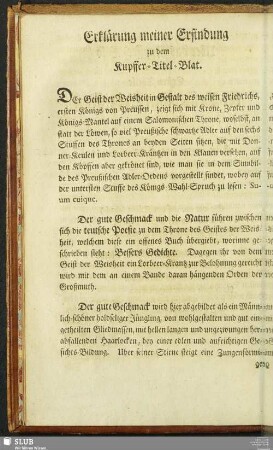 Erklärung meiner Erfindung
zu dem
Kupffer-Titel-Blat.
Der Geist der Weisheit in Gestalt des weisen Friedrichs,
ersten Königs von Preussen, zeigt sich mit Krone, Zepter und
Königs-Mantel auf einem Salomonischen Throne, woselbst, an
statt der Löwen, so viel Preußische schwartze Adler auf den sechs
Stuffen des Thrones an beyden Seiten sitzen, die mit Don-
ner-Keulen und Lorbeer-Kräntzen in den Klauen versehen, auf
den Köpffen aber gekrönet sind, wie man sie in dem Sinnbil-
de des Preußischen Adler-Ordens vorgestellt findet, wobey auf
der untersten Stuffe des Königs Wahl-Spruch zu lesen: Su-
um cuique.
Der gute Geschmack und die Natur führen zwischen
sich die teutsche Poesie zu dem Throne des Geistes der Weis-
heit, welchem diese ein offenes Buch übergiebt, worinne ge-
schrieben steht: Bessers Gedichte. Dagegen ihr von dem
Geist der Weisheit ein Lorbeer-Krantz zur Belohnung gereicht
wird mit dem an einem Bande daran hängenden Orden der
Großmuth.
Der gute Geschmack wird hier abgebildet als ein Männ-
lich-schöner holdseliger Jüngling, von wohlgestalten und gut ein-
getheilten Gliedmassen, mit hellen langen und ungezwungen her-
abfallenden Haarlocken, bey einer edlen und aufrichtigen Ge-
sichts-Bildung. Uber seiner Stirne steigt eine Zungenförmi-
ge
SLUB
Wir führen Wissen.